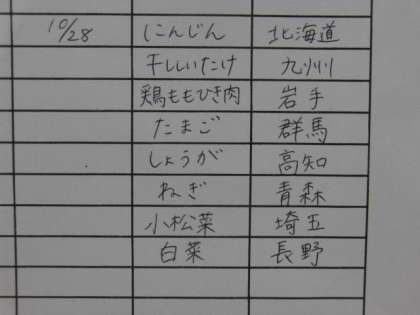 10/28 にんじん 北海道
干ししいたけ 九州
鶏ももひき肉 岩手
たまご 群馬
しょうが 高知
ねぎ 青森
小松菜 埼玉
白菜 長野